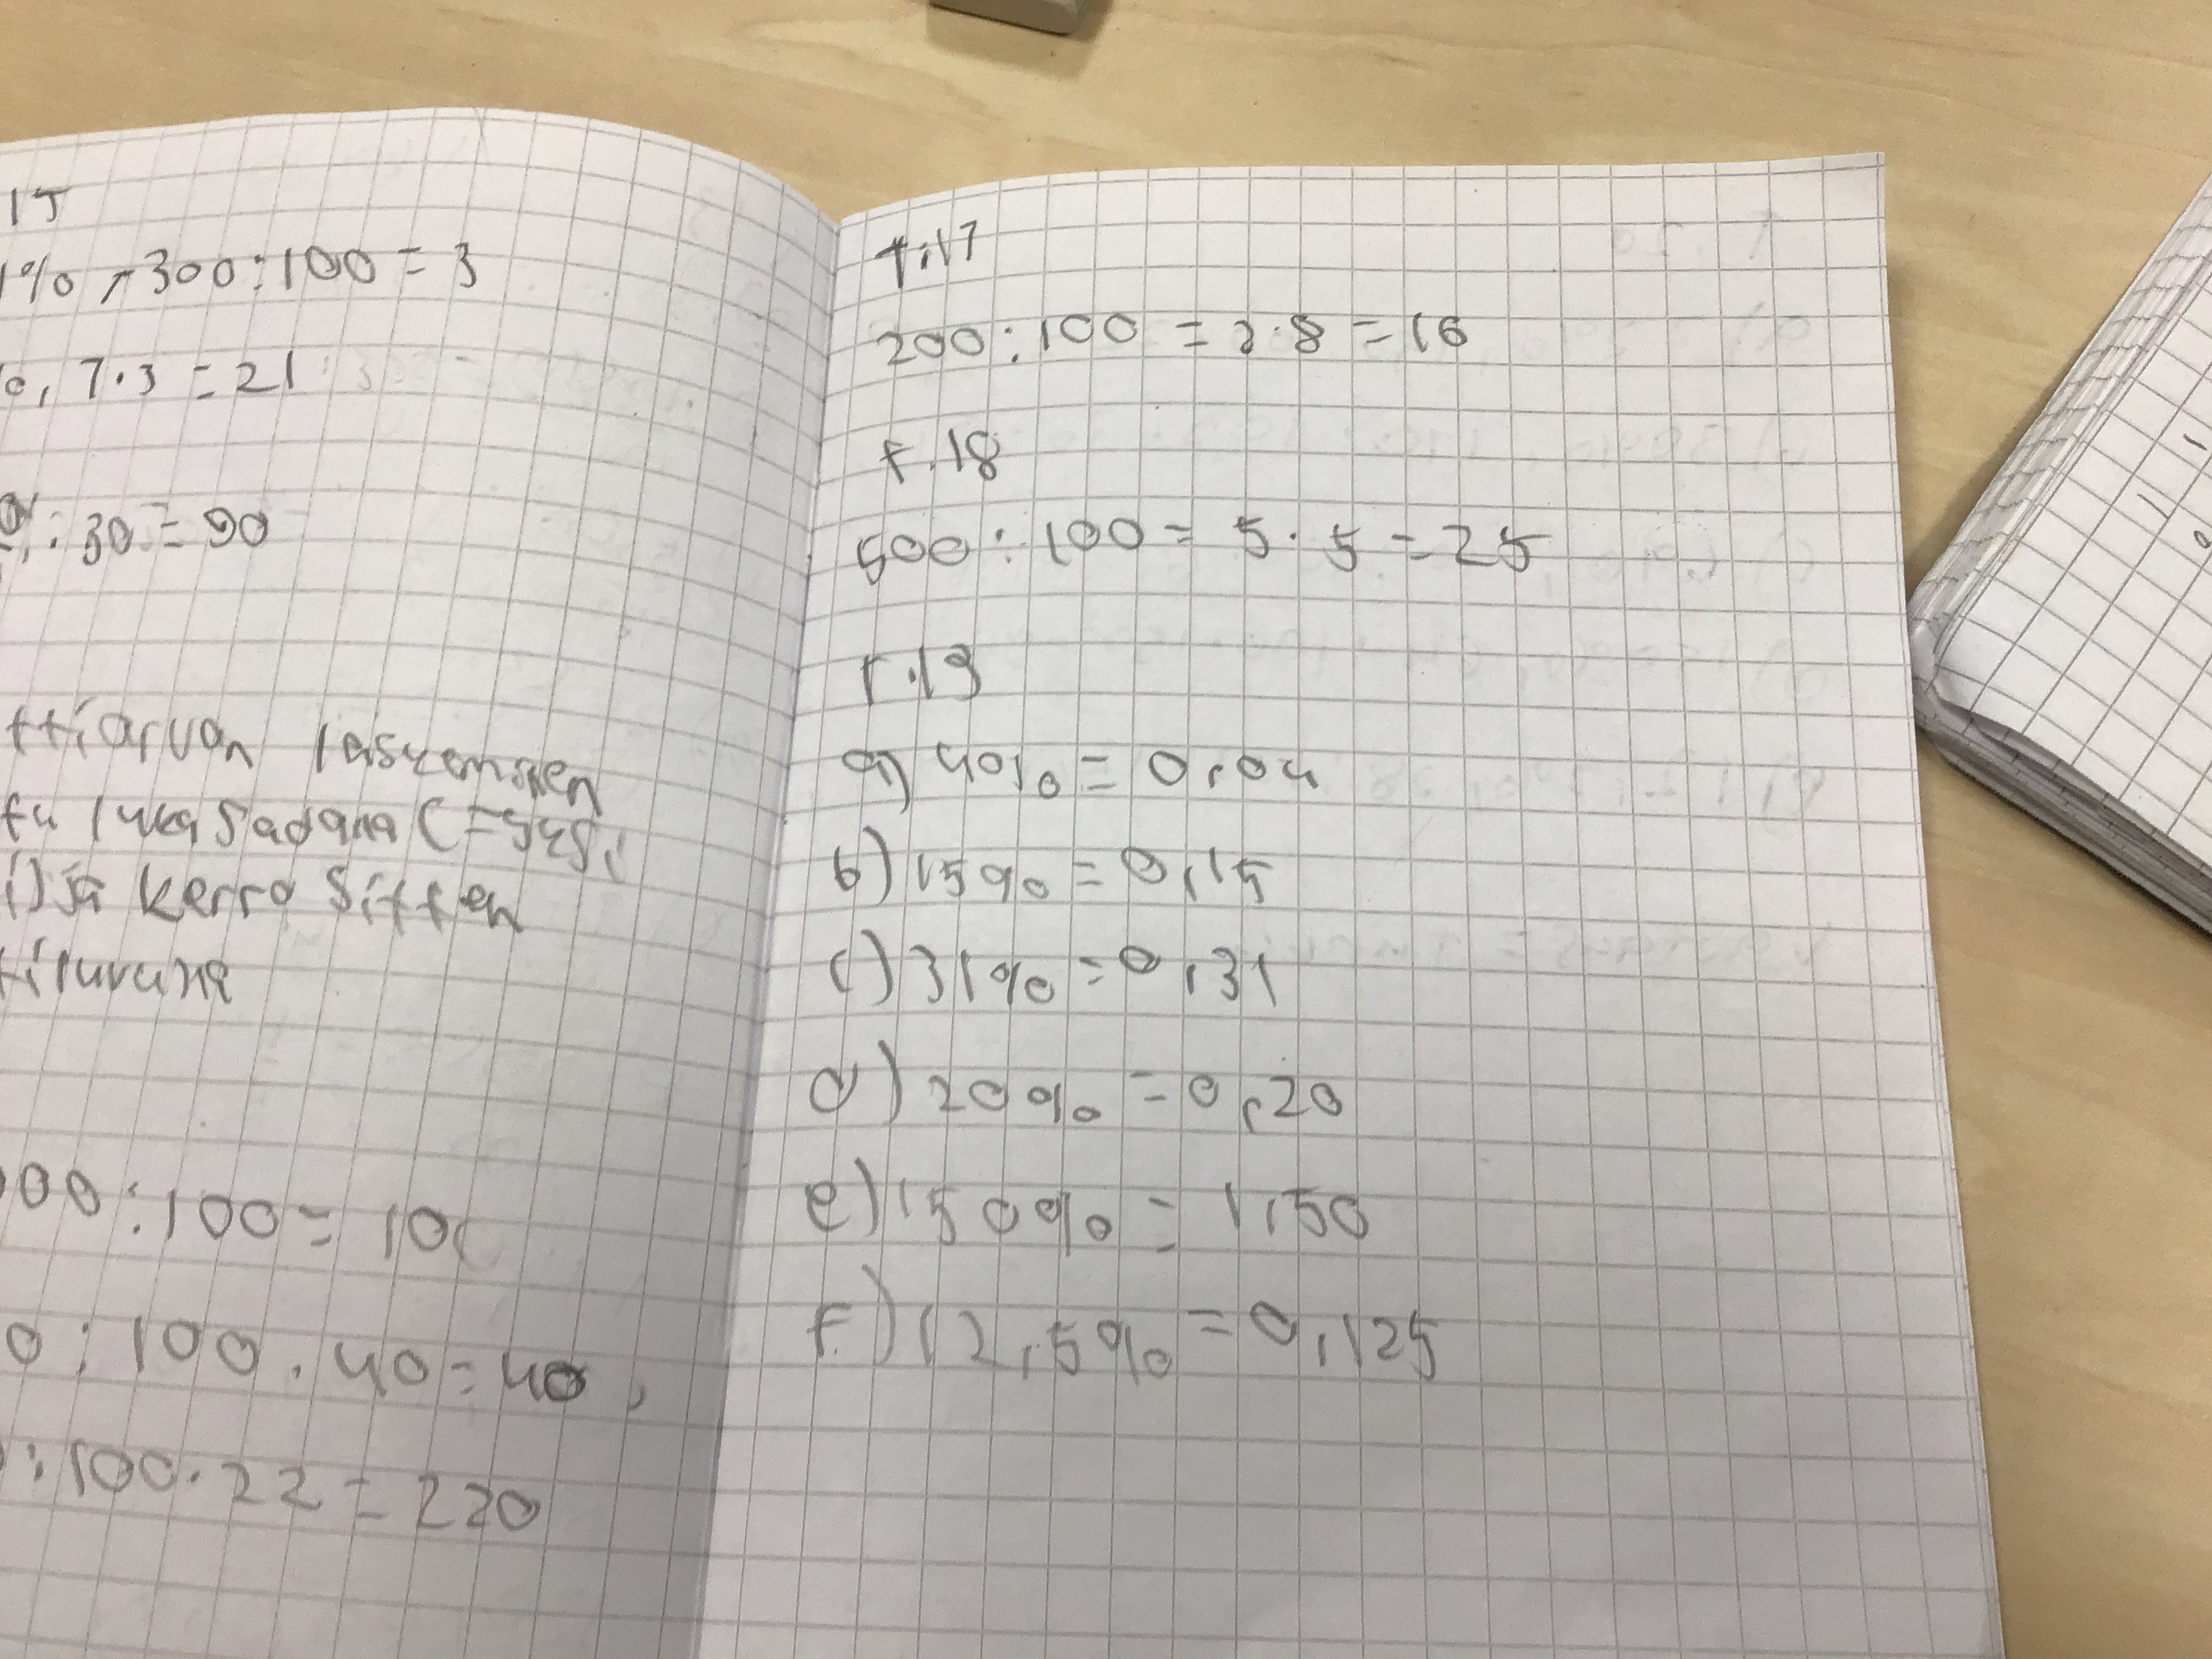 15
1% 300:100=3
7·3=21
:30=90
ttiarvan laskeminen
luku sadana (=yksi
ja kerro sitten
00:100=10
0:100·40=40
:100·22=220
t.17
200:100=2·8=16
t.18
500:100=5·5=25
t.19
a) 4%=0,04
b) 15%=0,15
c) 31%=0,31
d) 20%=0,20
e) 150%=1,50
f) 12,5%=0,125